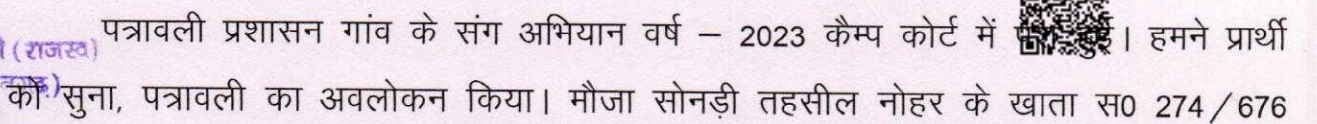 पत्रावली प्रशासन गांव के संग अभियान वर्ष – 2023 कैम्प कोर्ट में हुई। हमने प्रार्थी
(राजस्व)
को सुना, पत्रावली का अवलोकन किया। मौजा सोनड़ी तहसील नोहर के खाता स0 274/676